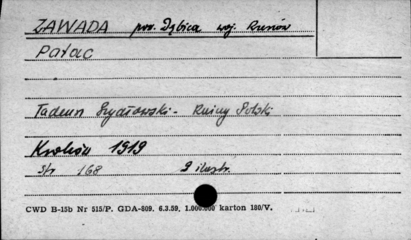 ZAWADA pow. Dębica woj. Rzeszów
Pałac
Tadeusz Szydłowski - Ruiny Polski
Kraków 1919
str 168 9 ilustr.
CWD B-15b Nr 515/P. GDA-809. 6.3.59, 1.000.000 karton 180/V.